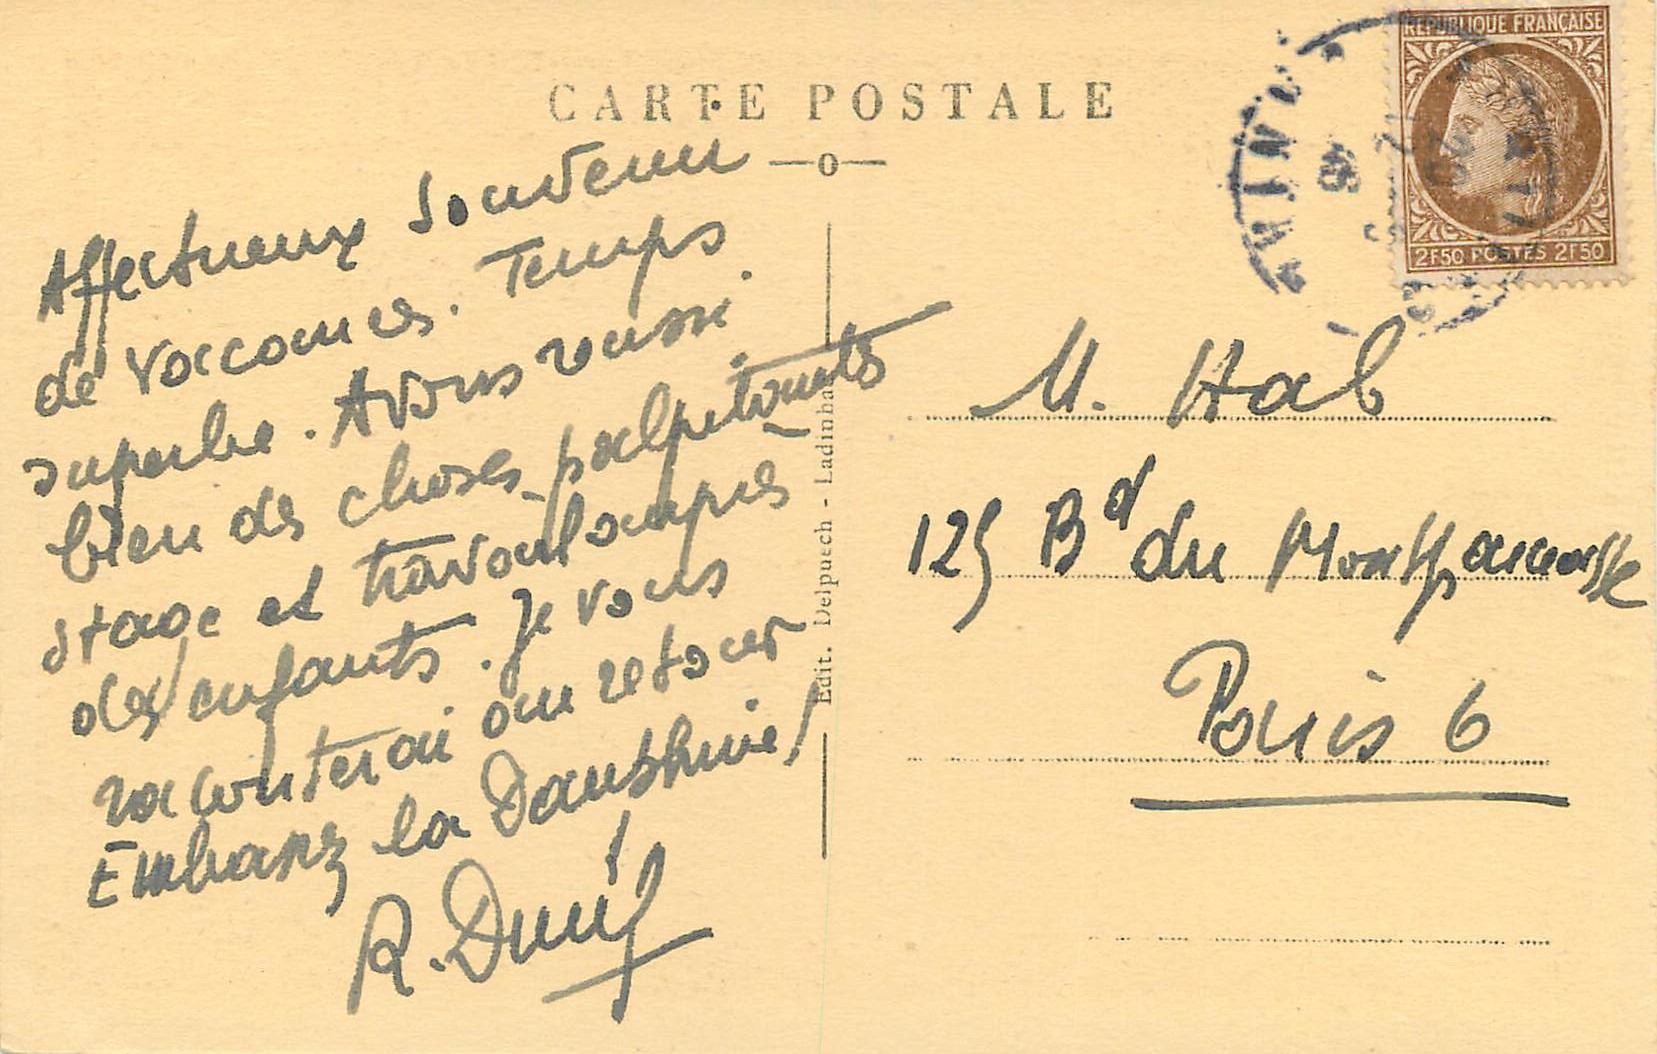 CARTE POSTALE
Affectueux souvenir
de vaccances. Temps
superbe. Avons réussi
bien des choses palpitants
stage et travail auprès
des enfants. Je vous
raconterai au retour
Embrasez la Dauphine!
R.
REPUBLIQUE FRANÇAISE
2F50 POSTES 2F50
M. Hab
125 Bd du Montparnasse
Paris 6
Edit. Delpuech - Ladinhac